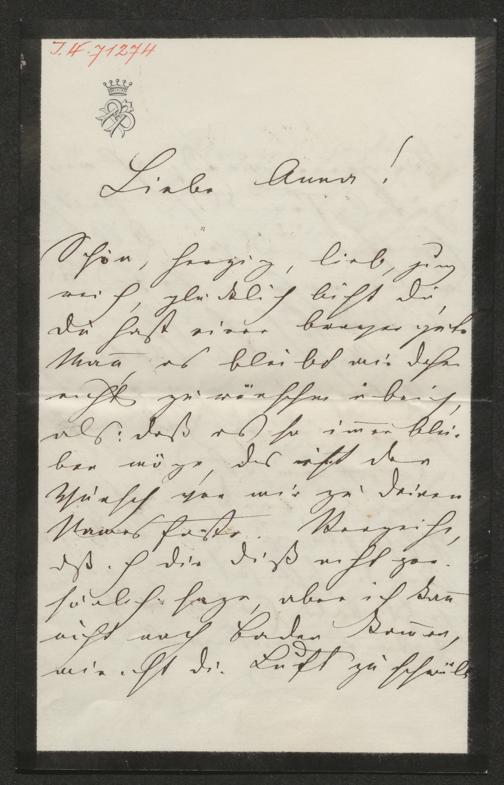 I.N. 71274
Liebe Anna!
Schön, herzig, lieb, jung
reich, glücklich bist du,
du hast einen braven guten
Mann, es bleibt mir daher
nicht zu wünschen übrig,
als: daß es so immer blei-
ben möge, das ist der
Wunsch von mir zu deinem
Namensfeste. Verzeihe,
daß ich dir dieß nicht per-
sönlich sage, aber ich kann
nicht nach Baden kommen,
mir ist die Luft zu schwül